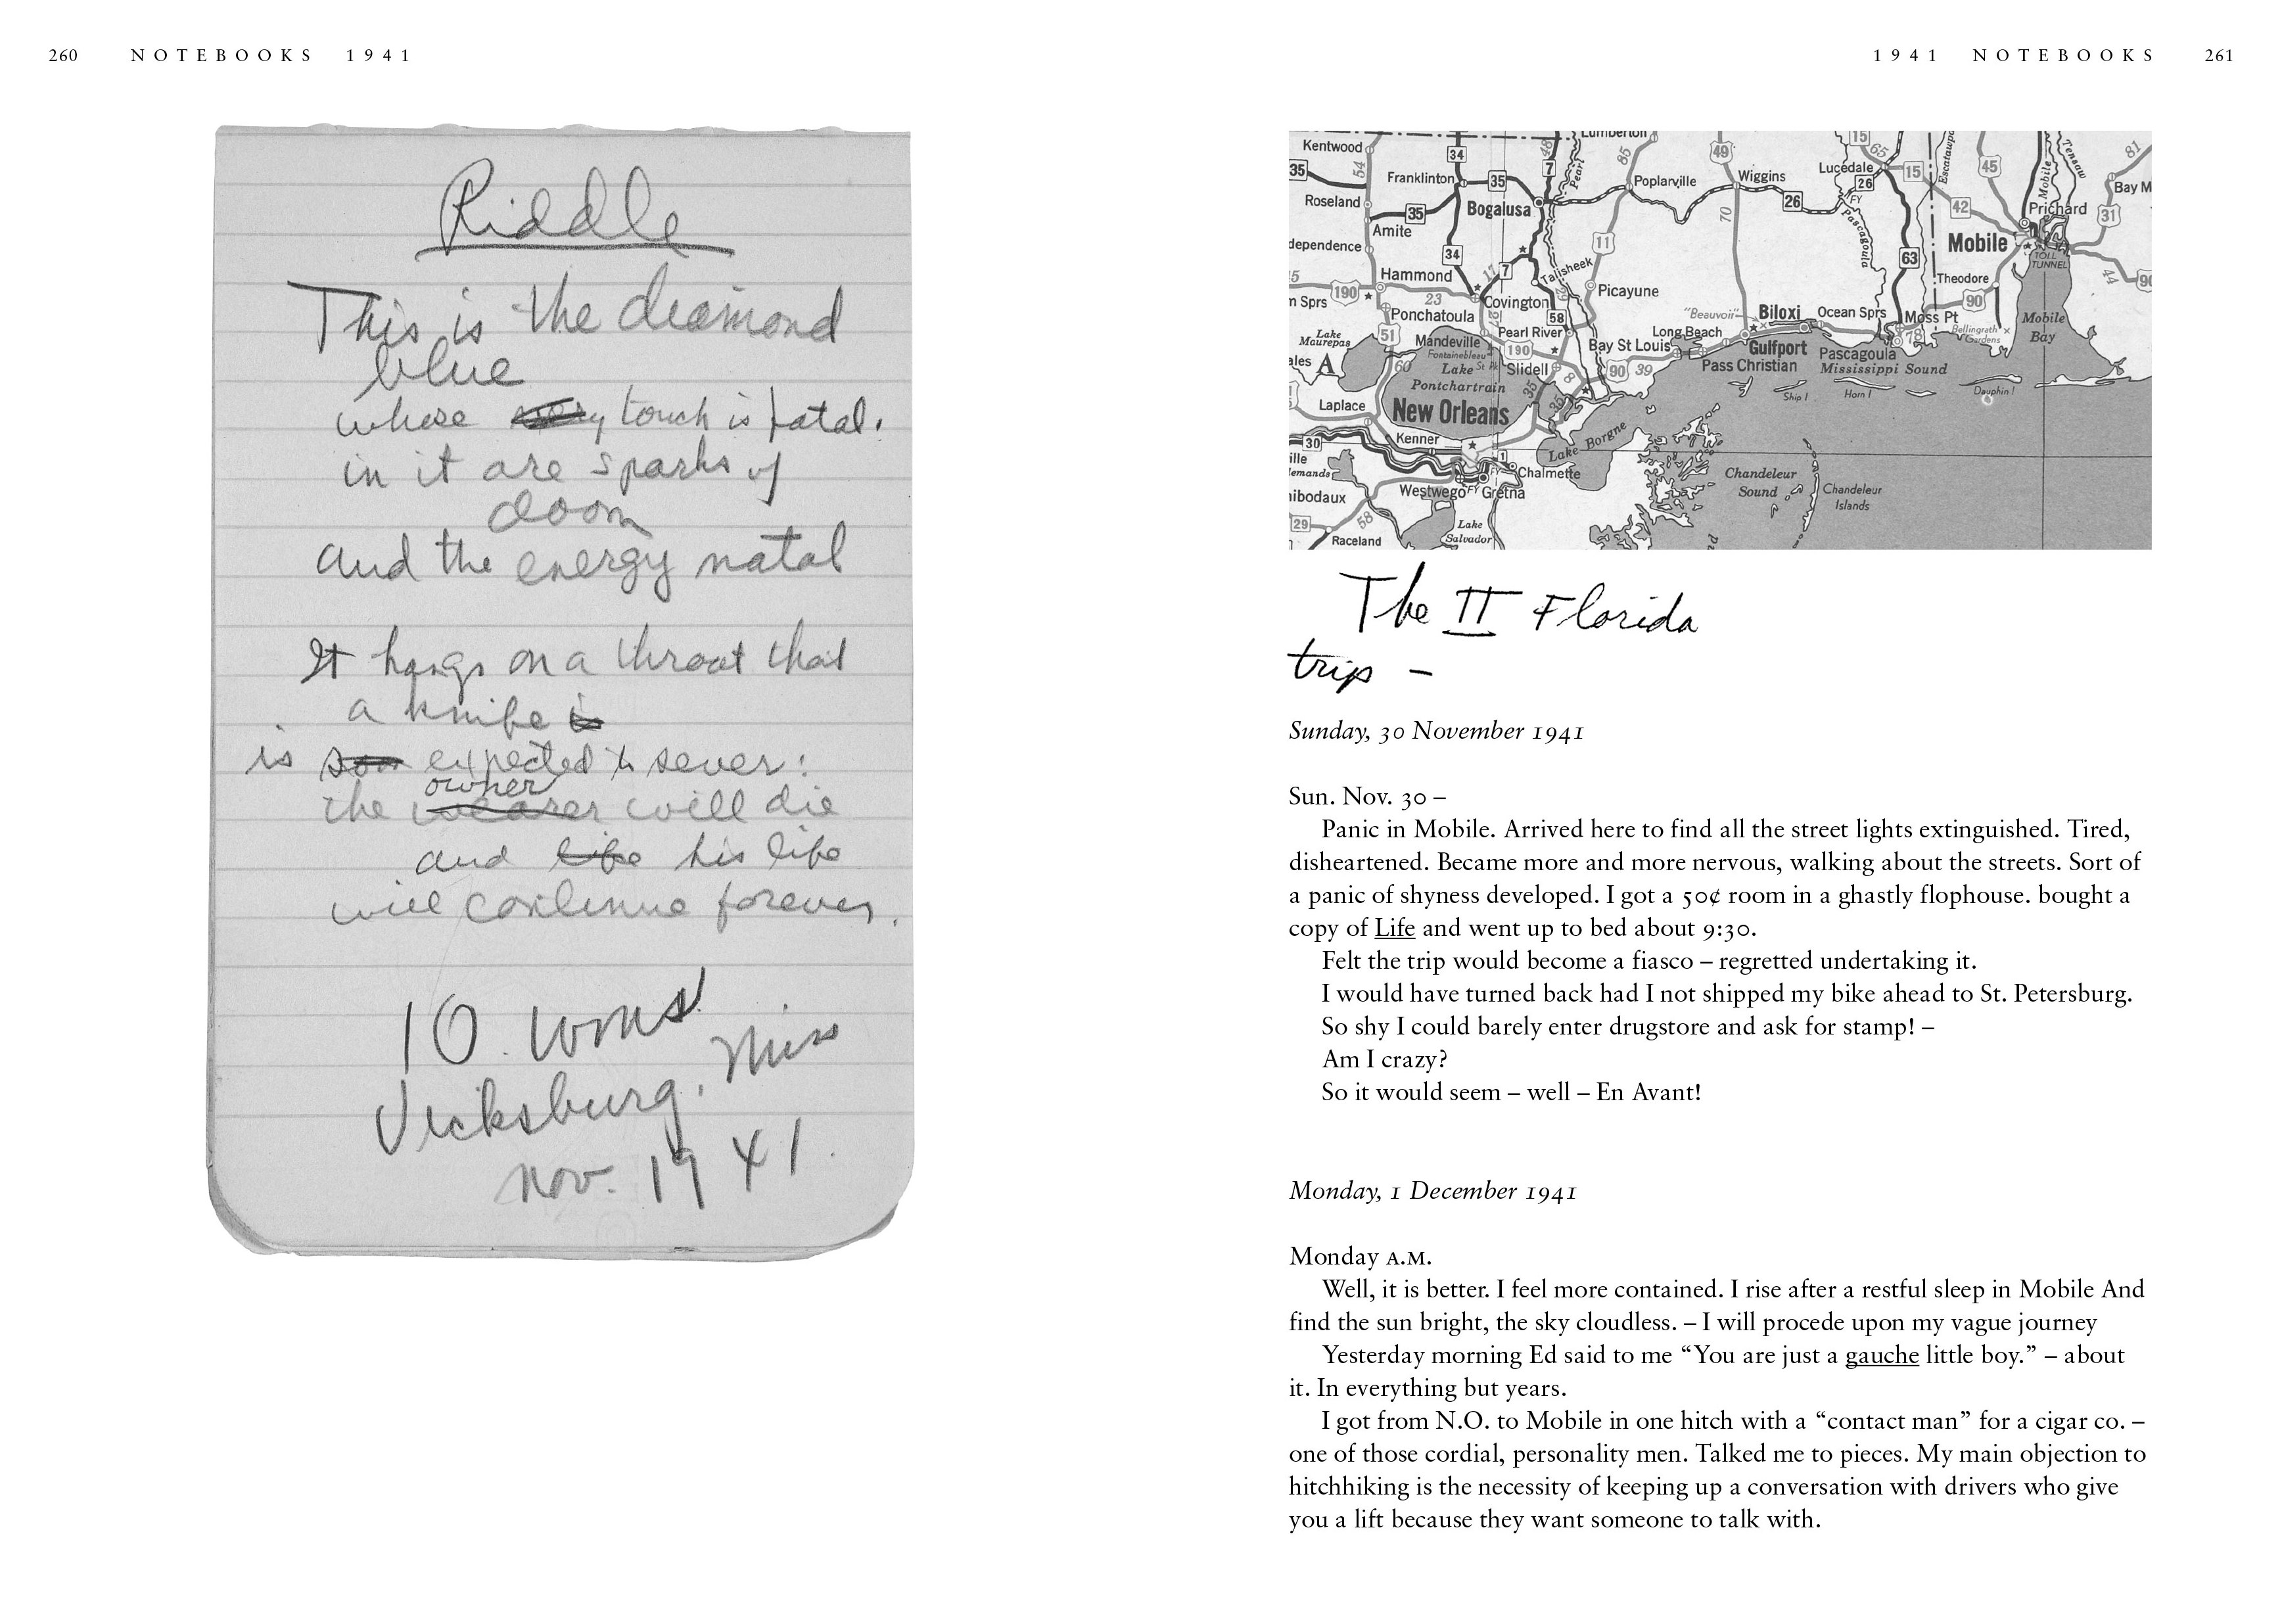 260 NOTEBOOKS 1941
Riddle
This is the diamond
blue
whose touch is fatal.
in it are sparks of
doom
and the energy natal
It hangs on a throat that
a knife is
is soon expected to sever:
owner
the wearer will die
and life his life
will continue forever.
10. wms
Vicksburg, Miss
Nov. 1941.
1941 NOTEBOOKS 261
Lumberton
Kentwood
54
34
48
7
Pearl
85
49
15
65
Lucedale
15
Escatawpa
45
Mobile
Tensaw
81
35
Franklinton
35
Poplarville
Wiggins
26
26
FY
Pascagoula
42
Bay M
Roseland
35
Bogalusa
70
Prichard
31
Amite
dependence
34
11
63
Mobile
TOLL
TUNNEL
44
Hammond
17
7
Talisheek
29
Theodore
45
190
23
Picayune
90
90
n Sprs
Covington
58
"Beauvoir"
Biloxi
Ocean Sprs
Moss Pt
Ponchatoula
Lake
Maurepas
51
Mandeville
Pearl River
Long Beach
78
Bellingrath
Gardens
Mobile
Bay
Fontainebleau
St Pk
190
Bay St Louis
Gulfport
Pascagoula
ales
A
60
Lake
Pontchartrain
Slidell
8
90
39
Pass Christian
Mississippi Sound
Ship I
Horn I
Dauphin I
Laplace
New Orleans
35
35
30
Kenner
Lake Borgne
ille
lemands
1
Chalmette
Chandeleur
Sound
Chandeleur
Islands
hibodaux
Westwego
FY
Gretna
29
58
Raceland
Lake
Salvador
The II Florida
trip –
Sunday, 30 November 1941
Sun. Nov. 30 –
Panic in Mobile. Arrived here to find all the street lights extinguished. Tired,
disheartened. Became more and more nervous, walking about the streets. Sort of
a panic of shyness developed. I got a 50¢ room in a ghastly flophouse. bought a
copy of Life and went up to bed about 9:30.
Felt the trip would become a fiasco – regretted undertaking it.
I would have turned back had I not shipped my bike ahead to St. Petersburg.
So shy I could barely enter drugstore and ask for stamp! –
Am I crazy?
So it would seem – well – En Avant!
Monday, 1 December 1941
Monday A.M.
Well, it is better. I feel more contained. I rise after a restful sleep in Mobile And
find the sun bright, the sky cloudless. – I will procede upon my vague journey
Yesterday morning Ed said to me “You are just a gauche little boy.” – about
it. In everything but years.
I got from N.O. to Mobile in one hitch with a “contact man” for a cigar co. –
one of those cordial, personality men. Talked me to pieces. My main objection to
hitchhiking is the necessity of keeping up a conversation with drivers who give
you a lift because they want someone to talk with.